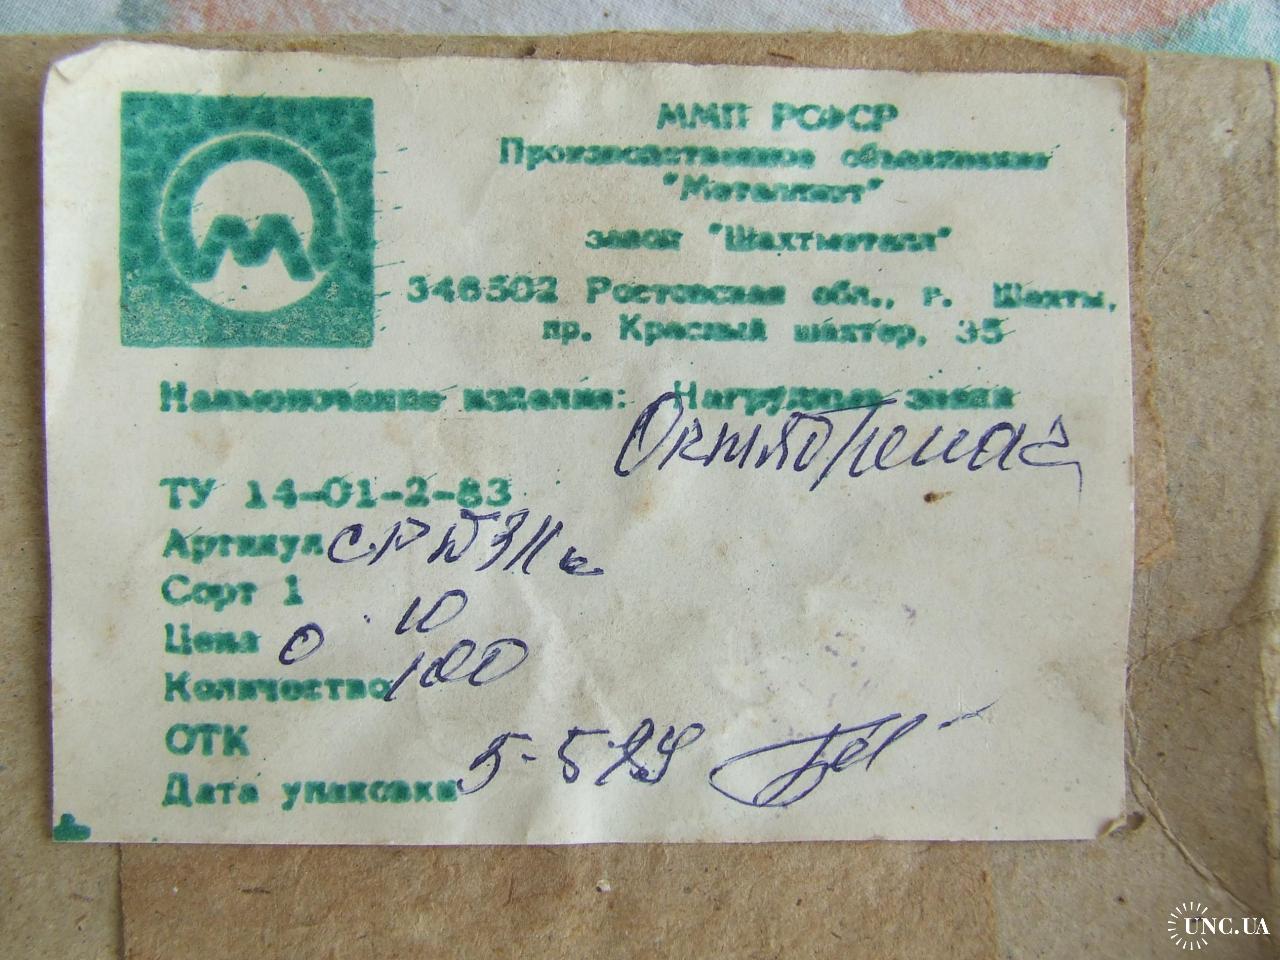 ММП РСФСР
Производственное объединение
"Металлист"
завод "Шахтметалл"
346502 Ростовская обл., г. Шахты,
пр. Красный шахтер, 35
Наименование изделия: Нагрудные знаки
ТУ 14-01-2-83
Артикул
Сорт 1
Цена 0 10
Количество 100
ОТК
Дата упаковки 5-5
UNC.UA